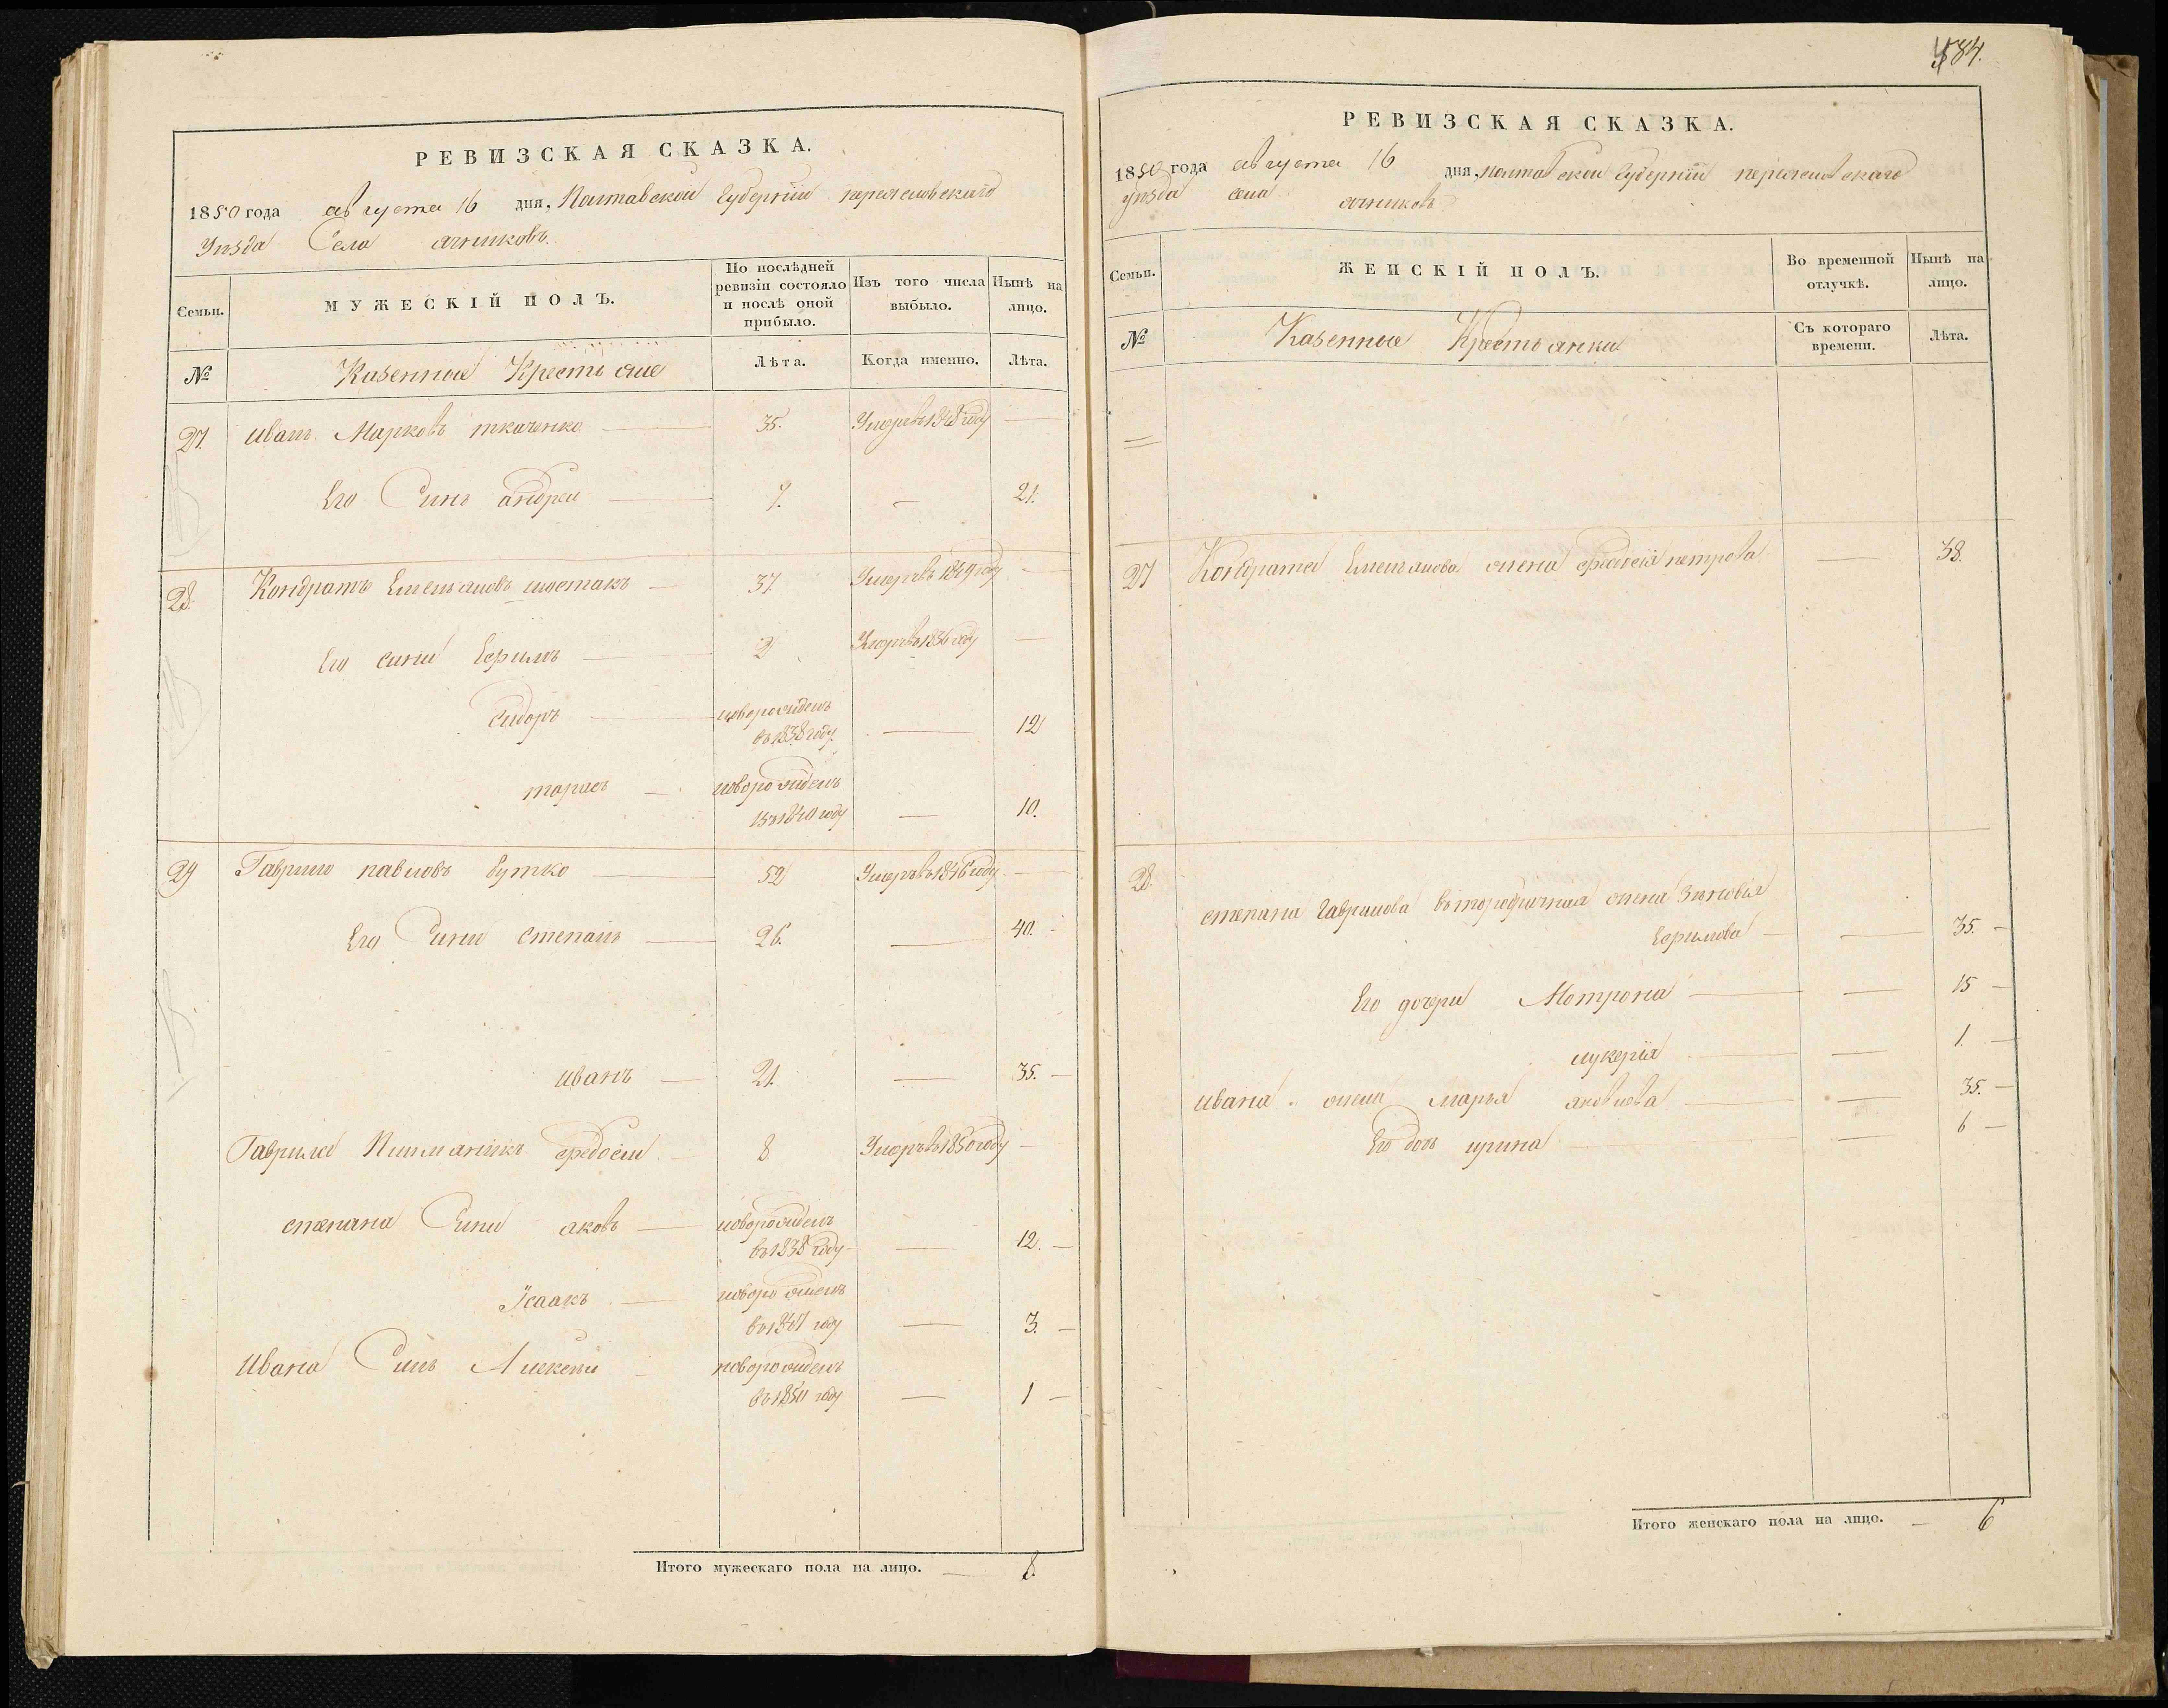 РЕВИЗСКАЯ СКАЗКА.
1850 года августа 16 дня, Полтавской Губернии переяславскаго
Уезда Села
Семьи.
МУЖЕСКІЙ ПОЛЪ.
По послѣдней ревизіи состояло и послѣ оной прибыло.
Изъ того числа выбыло.
Нынѣ на лицо.
№
Казенные Крестьяне
Лѣта.
Когда именно.
Лѣта.
27. иванъ Марковъ ткаченко 35. Умеръ въ 1848 году
Его Синъ андреи 7. 21.
28. Кондратъ Емельяновъ шостакъ 37. Умеръ въ 1849 году
Его сини Ефимъ 2 Умеръ въ 1836 году
сидоръ новорожденъ 12
въ 1838 году.
тарасъ новорожденъ
въ 1840 году 10.
29 Гаврило павловъ бутко 52 Умеръ въ 1846 году
Его Сини Степанъ 26. 40.
иванъ 21. 35.
Гаврила Федосіи 8 Умеръ въ 1850 году
степана Сини аковъ новорожденъ
въ 1838 году 12.
Ісаакъ новорожденъ
въ 1847 году 3.
Ивана Синъ Алексеи новорожденъ
въ 1850 году 1
Итого мужескаго пола на лицо. 8
584.
РЕВИЗСКАЯ СКАЗКА.
1850 года августа 16 дня, полтавской Губернии переяславскаго
уезда села
Семьи.
ЖЕНСКІЙ ПОЛЪ.
Во временной отлучкѣ.
Нынѣ на лицо.
№
Казенные Крестьянки
Съ котораго времени.
Лѣта.
27 Кондрата Емельянова жена петрова 38.
28. степана Гаврилова жена Зѣновія
Ефимова 35.
Его дочери Мотрона 15
лукерія 1.
ивана жена марья аковлева 35.
Его дочь ирина 6
Итого женскаго пола на лицо. 6